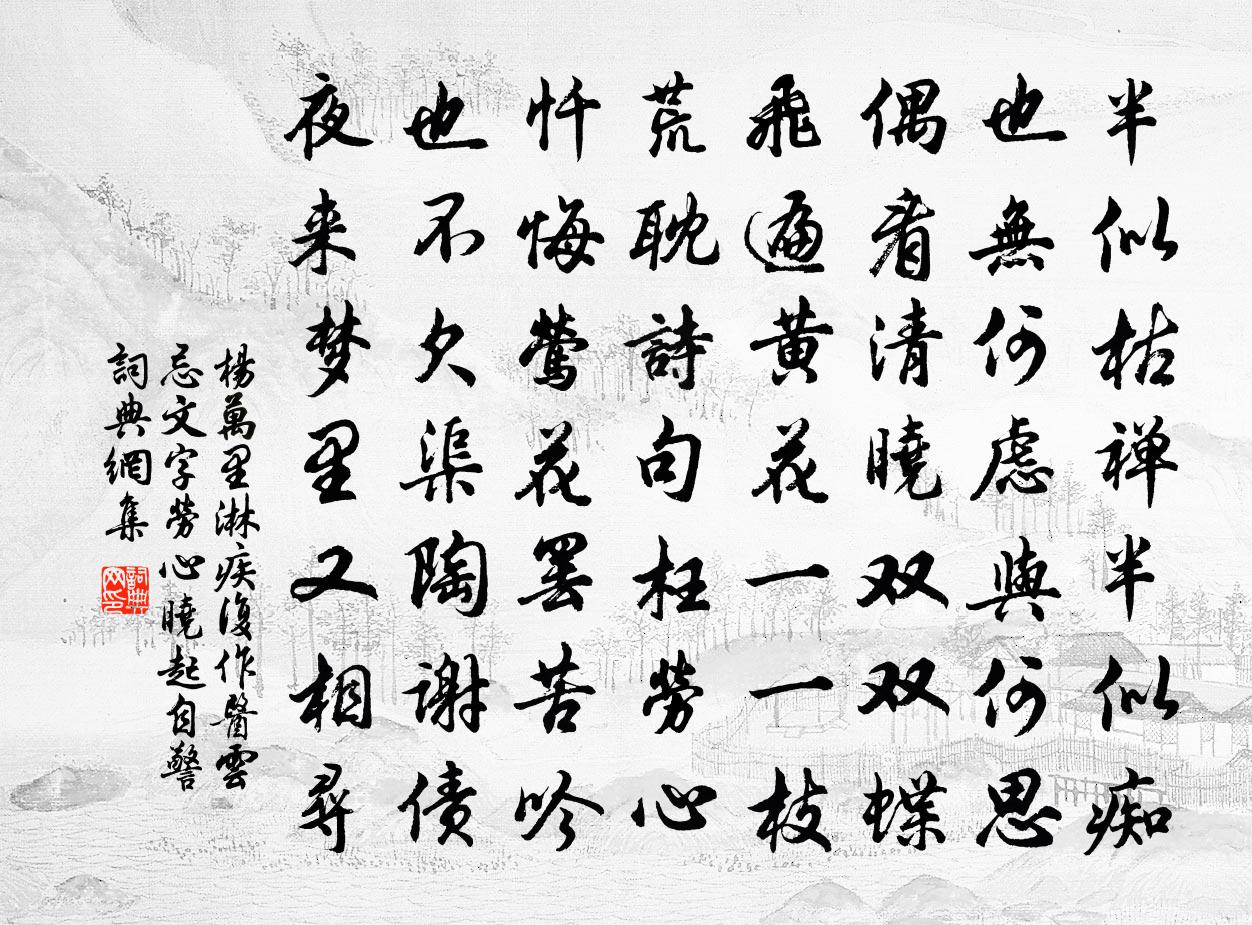 半似枯禅半似痴
也無何慮與何思
偶看清曉双双蝶
飛遍黄花一一枝
荒耽詩句枉勞心
忏悔鶯花罢苦吟
也不欠渠陶謝债
夜来梦里又相尋
楊萬里淋疾復作醫雲
忌文字勞心曉起自警
詞典網集
詞典网印